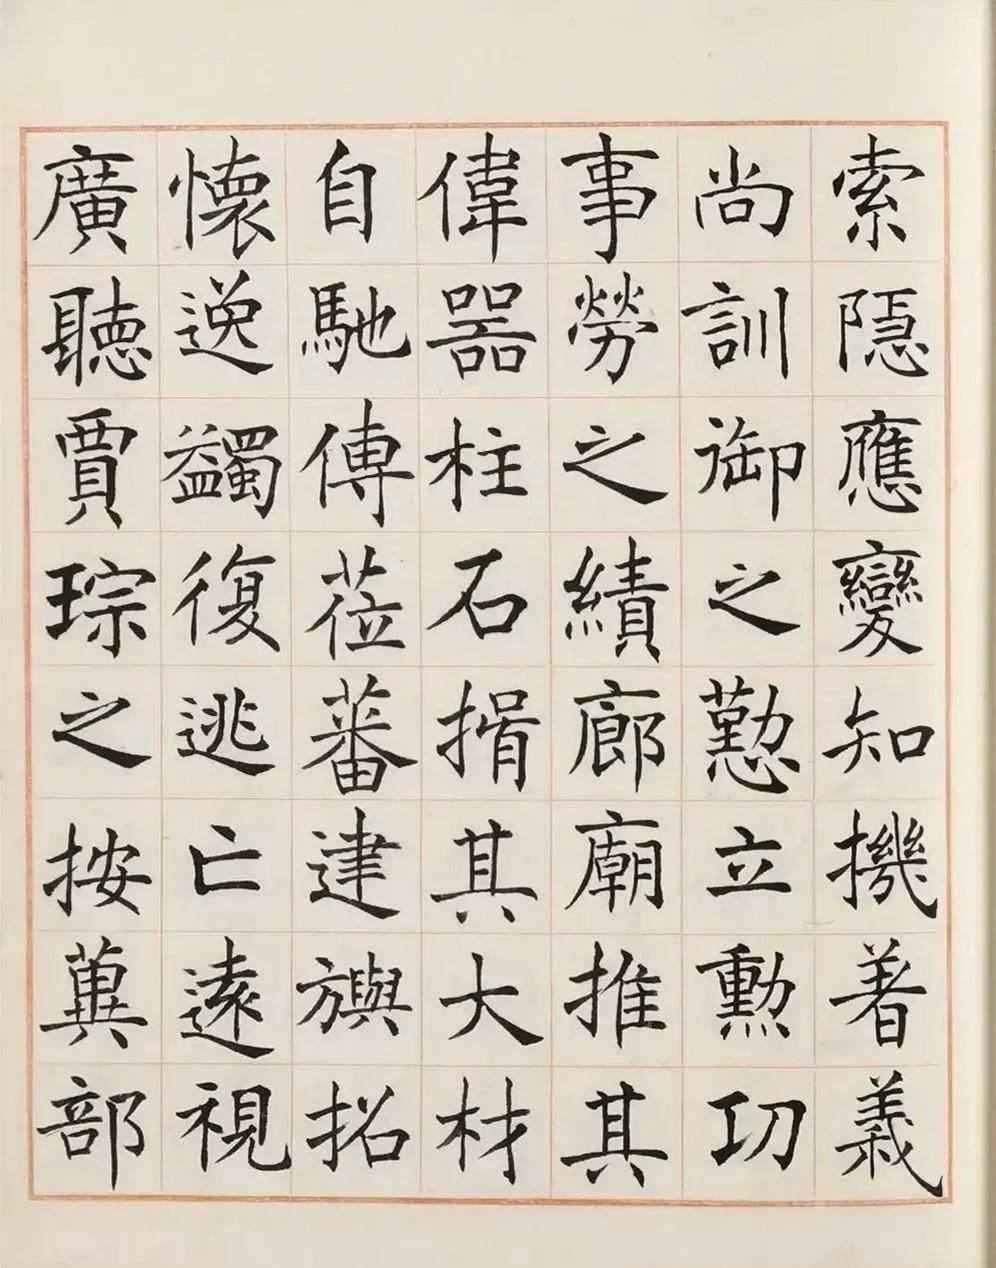 索隱應變知機著義
尚訓御之懃立勲功
事勞之績廊廟推其
偉器柱石揖其大材
自馳傳莅蕃建旟招
懷逸蠲復逃亡遠視
廣聽賈琮之按冀部